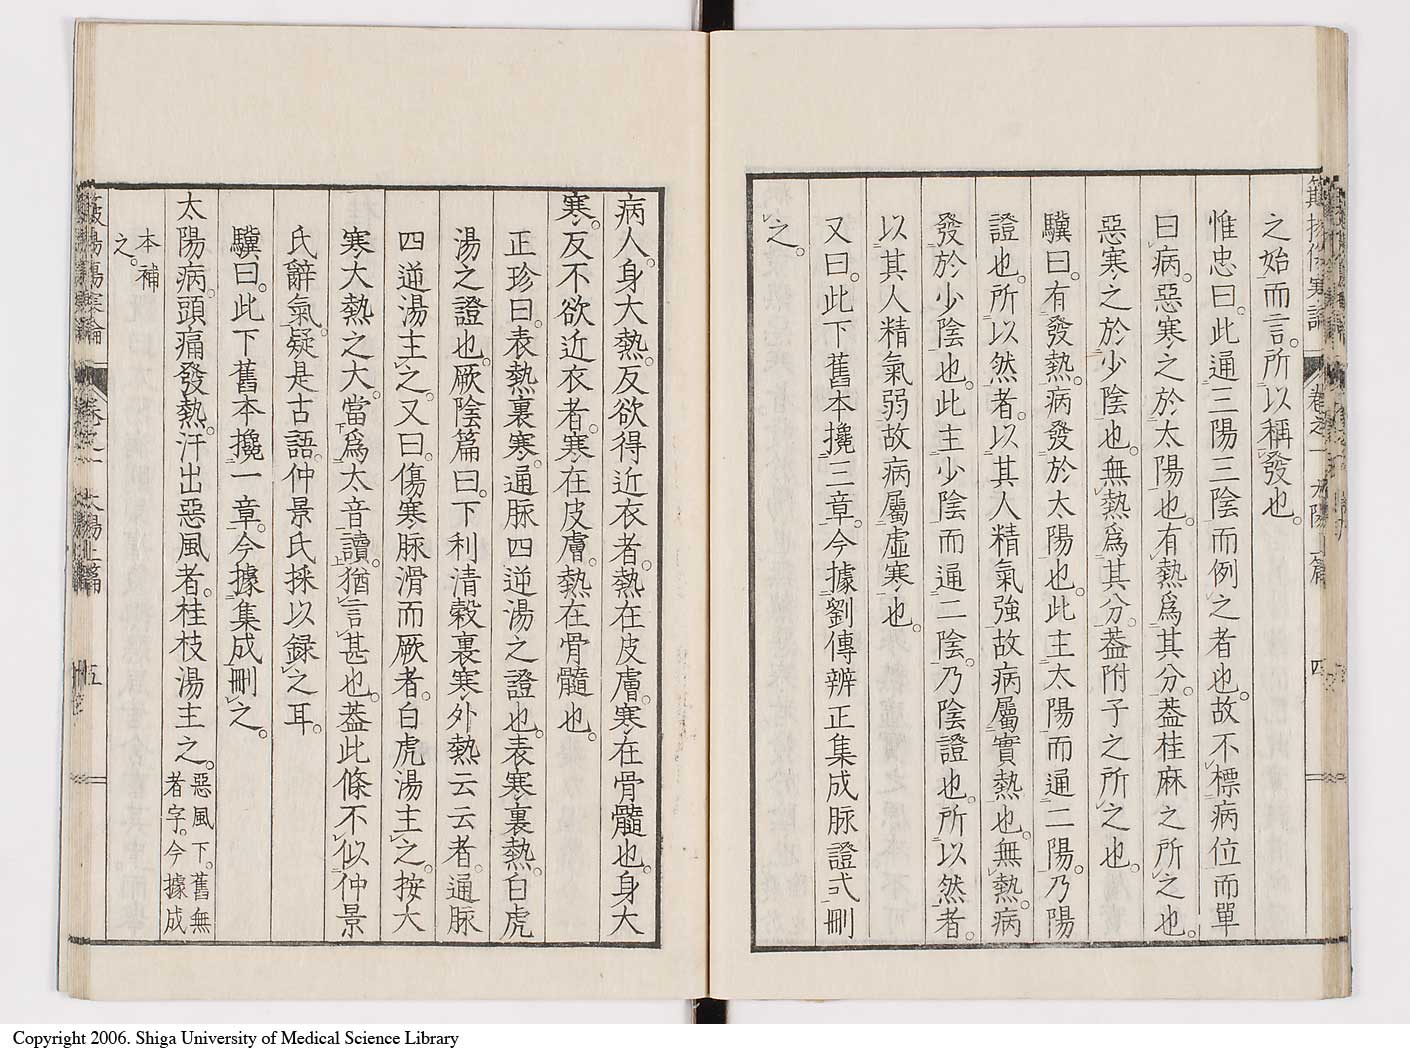 之始而言。所以稱發也。
惟忠曰。此通三陽三陰而例之者也。故不標病位而單
曰病。惡寒之於太陽也。有熱爲其分。葢桂麻之所之也。
惡寒之於少陰也。無熱爲其分。葢附子之所之也。
驥曰。有發熱。病發於太陽也。此主太陽而通二陽。乃陽
證也。所以然者。以其人精氣強故病屬實熱也。無熱。病
發於少陰也。此主少陰而通二陰。乃陰證也。所以然者。
以其人精氣弱故病屬虛寒也。
又曰。此下舊本攙三章。今據劉傳辨正集成脉證式刪
之。
病人。身大熱。反欲得近衣者。熱在皮膚。寒在骨髓也。身大
寒。反不欲近衣者。寒在皮膚。熱在骨髓也。
正珍曰。表熱裏寒。通脉四逆湯之證也。表寒裏熱。白虎
湯之證也。厥陰篇曰。下利清穀裏寒外熱云云者。通脉
四逆湯主之。又曰。傷寒脉滑而厥者。白虎湯主之。按大
寒大熱之大。當爲太音讀。猶言甚也。葢此條不似仲景
氏辭氣。疑是古語。仲景氏採以録之耳。
驥曰。此下舊本攙一章。今據集成刪之。
太陽病。頭痛發熱。汗出惡風者。桂枝湯主之。惡風下。舊無
者字。今據成
本補
之。
卷之一 太陽上篇 五